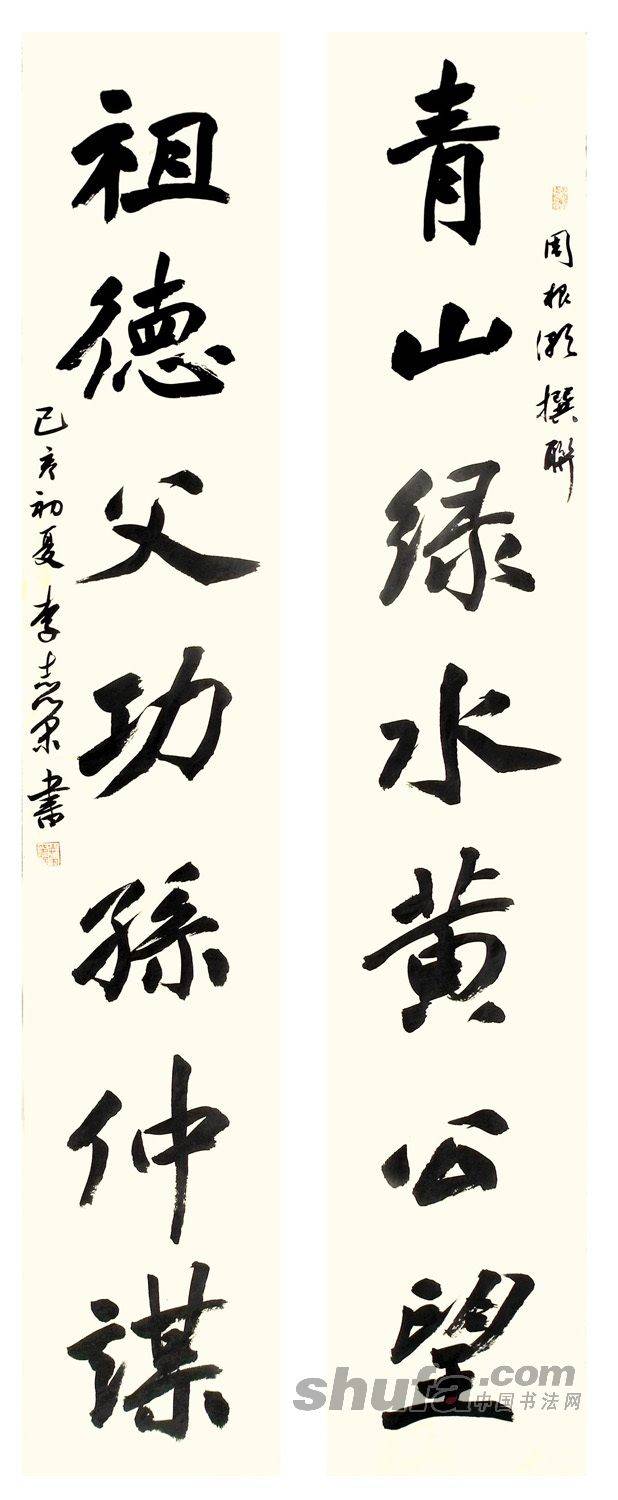 周根源撰聯
青山绿水黄公望
祖德父功孫仲謀
己亥初夏 李志果書
shufa.com
中国书法网